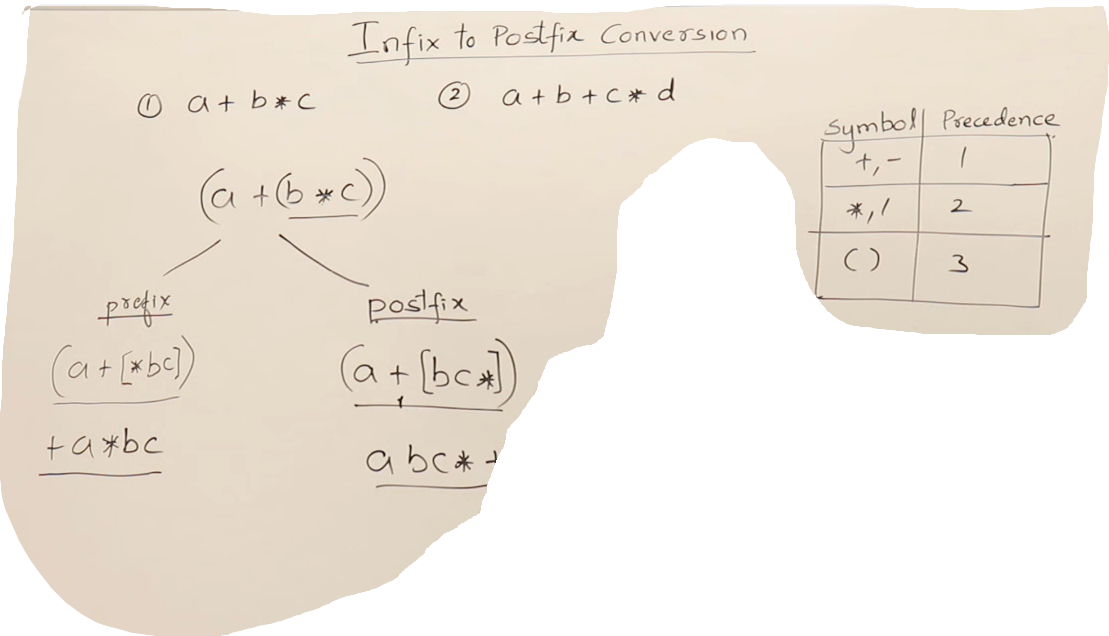 Infix to Postfix Conversion
① a + b * c ② a + b + c * d
Symbol Precedence
+, - 1
*, / 2
( ) 3
(a + (b * c))
prefix postfix
(a + [*bc]) (a + [bc*])
+a*bc abc* +